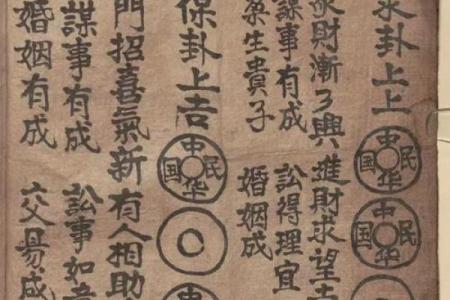 卦上上
中华民国
中华民国
財漸々興進財求望吉
謀事有成 訟得理宜
生貴子 婚姻成
保卦上吉
中华民国
中
門招喜氣新有人相助
謀事有成 訟事如意
婚姻有成 交易成